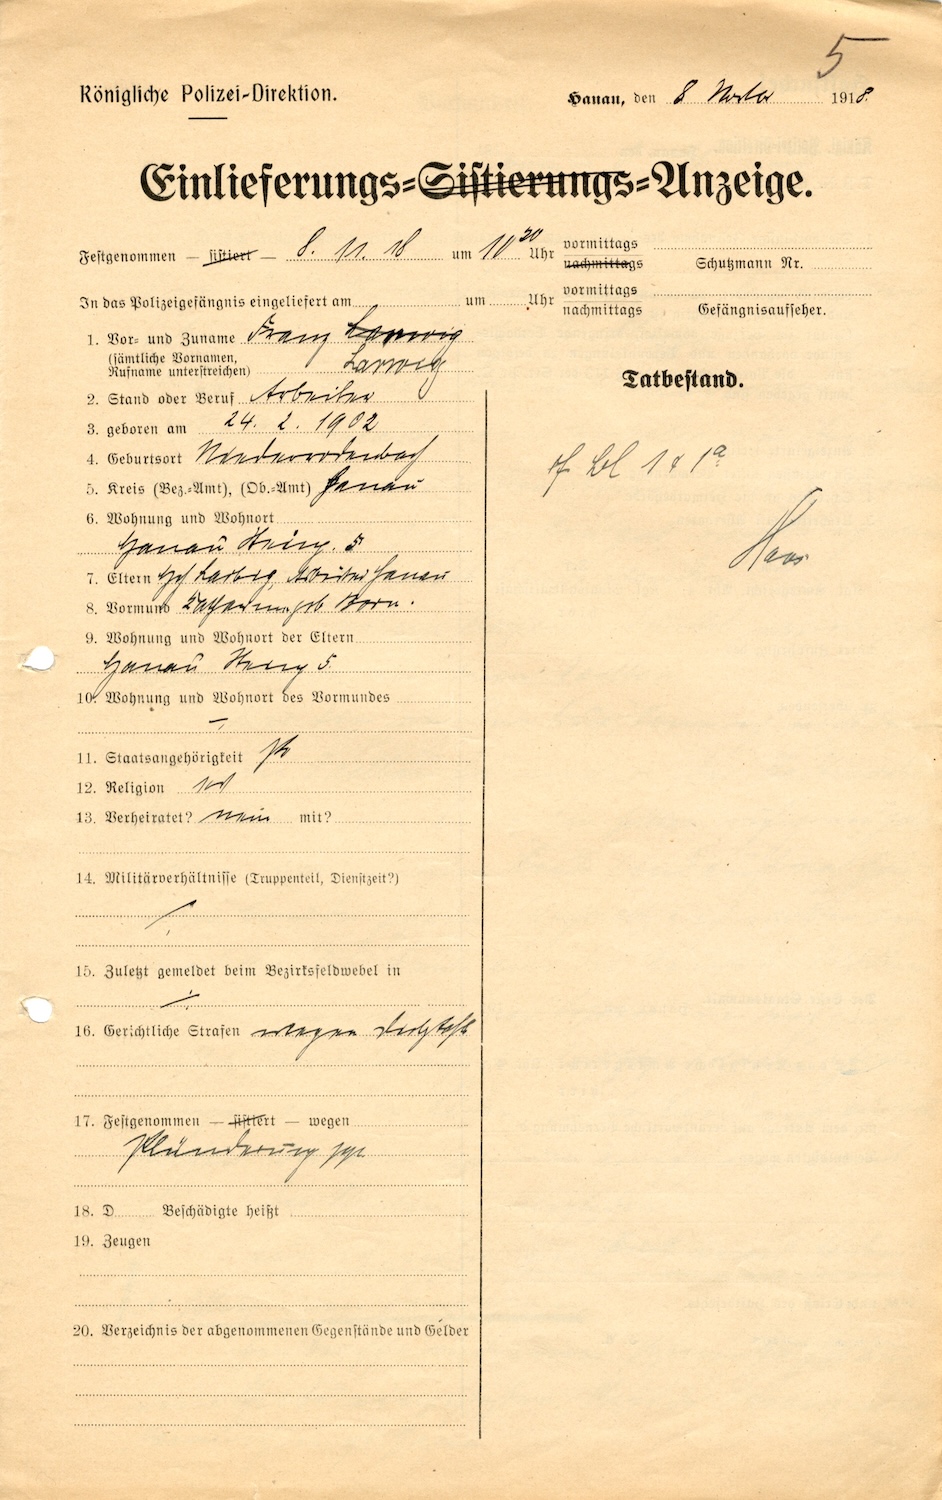 5
Königliche Polizei-Direktion.
Hanau, den 8 Novbr 1918.
Einlieferungs-Sistierungs-Anzeige.
Festgenommen — sistiert — 8. 11. 18 um 10 20 Uhr vormittags nachmittags Schutzmann Nr.
In das Polizeigefängnis eingeliefert am um Uhr vormittags nachmittags Gefängnisaufseher.
1. Vor- und Zuname Franz
(sämtliche Vornamen, Rufname unterstreichen)
Tatbestand.
2. Stand oder Beruf Arbeiter
3. geboren am 24. 2. 1902
4. Geburtsort Niederrodenbach
cf Bl 1 & 1a
5. Kreis (Bez.-Amt), (Ob.-Amt) Hanau
6. Wohnung und Wohnort
Hanau 5
Haas
7. Eltern Arbeiter Hanau
8. Vormund Katharina geb Born.
9. Wohnung und Wohnort der Eltern
Hanau 5
10. Wohnung und Wohnort des Vormundes
—
11. Staatsangehörigkeit Pr
12. Religion
13. Verheiratet? nein mit?
14. Militärverhältnisse (Truppenteil, Dienstzeit?)
15. Zuletzt gemeldet beim Bezirksfeldwebel in
16. Gerichtliche Strafen wegen Diebstahl
17. Festgenommen — sistiert — wegen
Plünderung pp
18. D Beschädigte heißt
19. Zeugen
20. Verzeichnis der abgenommenen Gegenstände und Gelder